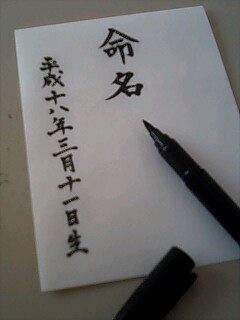 命名
平成十八年三月十一日生